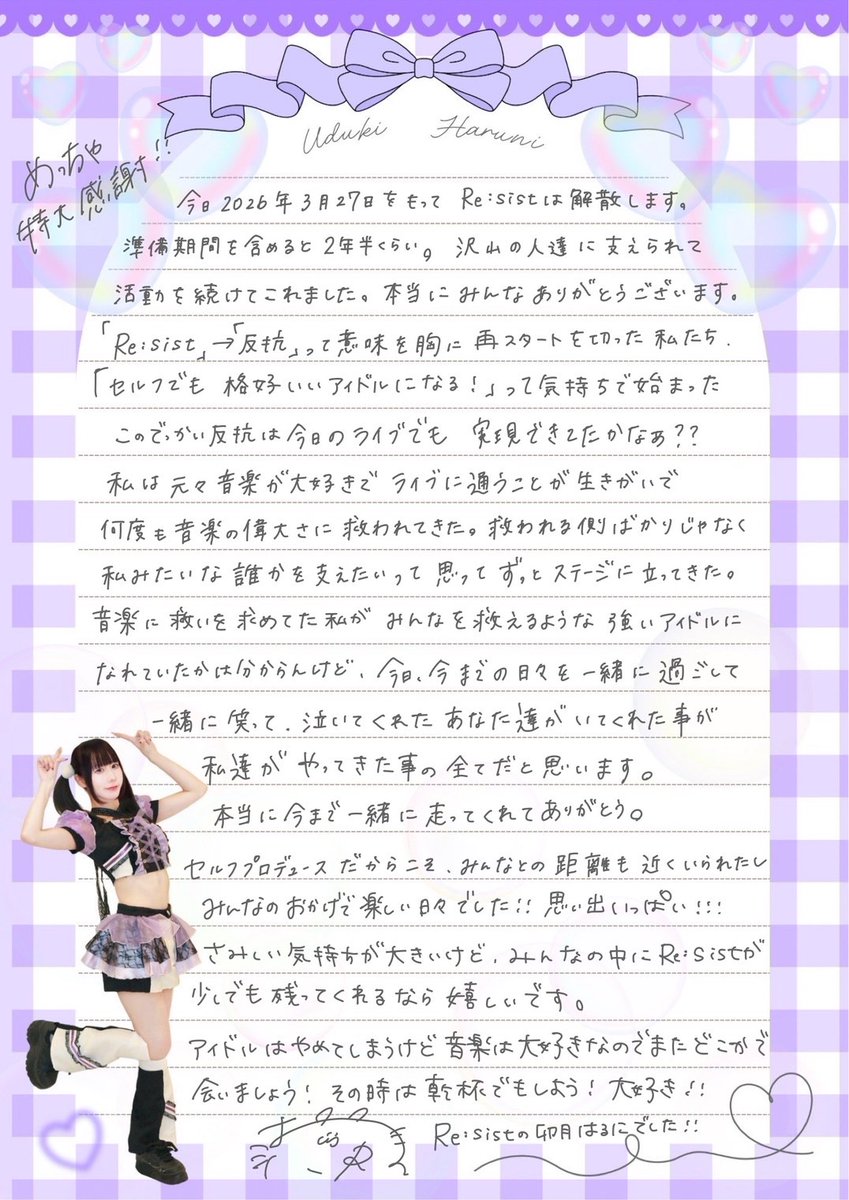 Uduki Haruni
めっちゃ
特大感謝!!
今日2026年3月27日をもって Re:sistは解散します。
準備期間を含めると2年半くらい。沢山の人達に支えられて
活動を続けてこれました。本当にみんなありがとうございます。
「Re:sist」→「反抗」って意味を胸に再スタートを切った私たち.
「セルフでも 格好いいアイドルになる！」って気持ちで始まった
このでっかい反抗は今日のライブでも 実現できてたかなぁ??
私は元々音楽が大好きで ライブに通うことが生きがいで
何度も音楽の偉大さに救われてきた。救われる側ばかりじゃなく
私みたいな誰かを支えたいって思ってずっとステージに立ってきた。
音楽に救いを求めてた私が みんなを救えるような 強いアイドルに
なれていたかは分からんけど、今日、今までの日々を一緒に過ごして
一緒に笑って、泣いてくれた あなた達がいてくれた事が
私達が やってきた事の全てだと思います。
本当に今まで一緒に走ってくれてありがとう。
セルフプロデュースだからこそ、みんなとの距離も近くいられたし
みんなのおかげで楽しい日々でした!! 思い出いっぱい!!!
さみしい気持ちが大きいけど、みんなの中にRe:sistが
少しでも残ってくれるなら嬉しいです。
アイドルはやめてしまうけど音楽は大好きなのでまたどこかで
会いましょう! その時は乾杯でもしよう! 大好き!!
Re:sistの卯月はるにでした!!